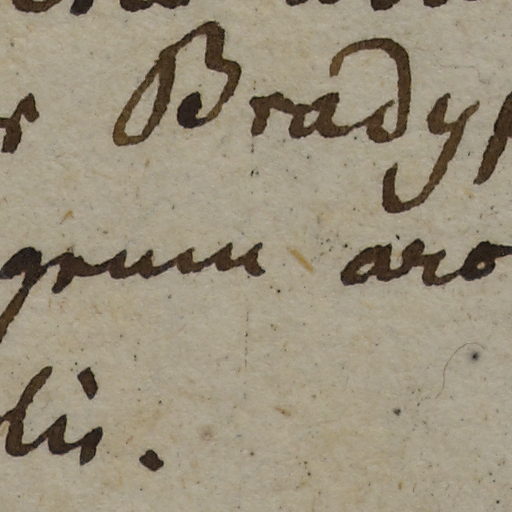 r Bradyp
grum aro
lis.